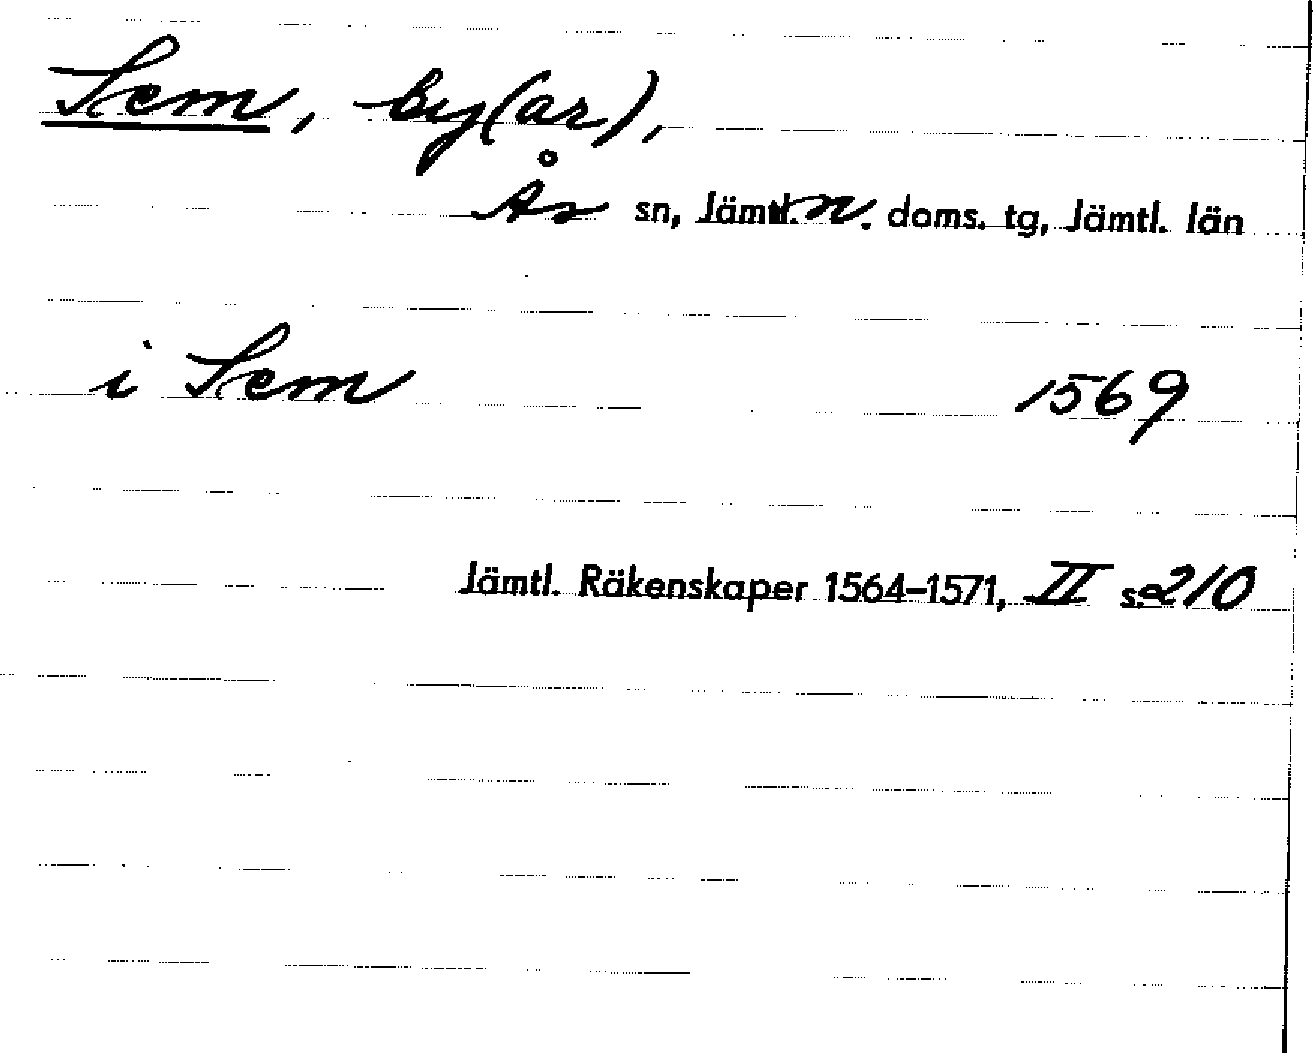 Sem, by(ar),
Ås sn, Jämtl. n. doms. tg, Jämtl. län
i Sem 1569
Jämtl. Räkenskaper 1564-1571, II s. 210